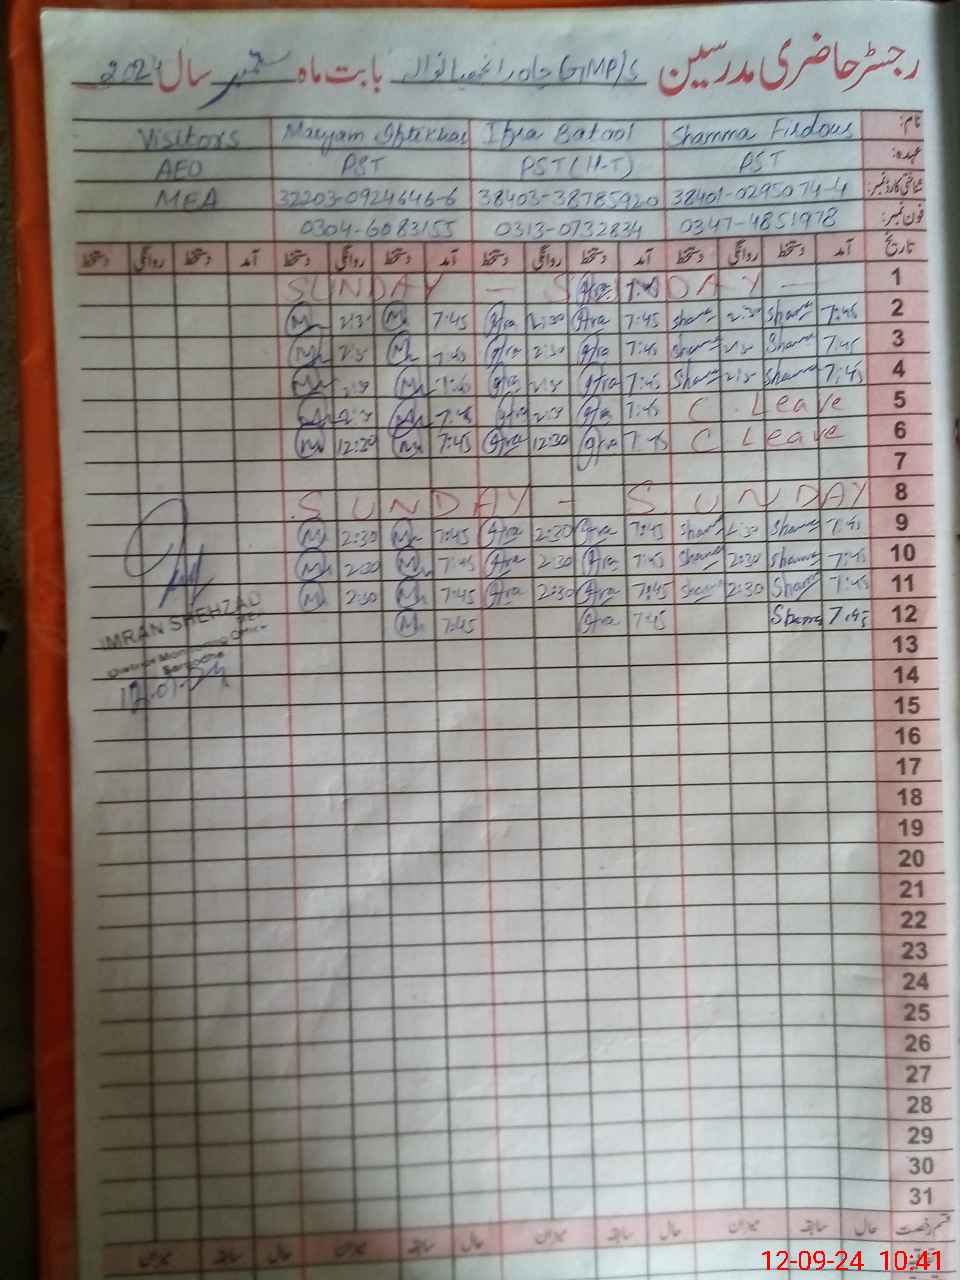 رجسٹر حاضری مدرسین GMP/S چاہ رانجھیانوالہ بابت ماہ ستمبر سال 2024
نام: Shamma Firdous Ifra Batool Maryam Iftikhar Visitors
عہدہ: PST PST (H-T) PST AEO
شناختی کارڈ نمبر: 38401-0295074-4 38403-38785920 32203-0924646-6 MEA
فون نمبر: 0347-4851978 0313-0732834 0304-6083155
تاریخ آمد دستخط روانگی دستخط آمد دستخط روانگی دستخط آمد دستخط روانگی دستخط آمد دستخط روانگی دستخط
1 SUNDAY - SUNDAY -
2 7:45 Sham 2:30 Sham 7:45 Ifra 2:30 Ifra 7:45 M 2:30 M
3 7:45 Sham 2:30 Sham 7:45 Ifra 2:30 Ifra 7:45 M 2:30 M
4 7:45 Sham 2:30 Sham 7:45 Ifra 2:30 Ifra 7:45 M 2:30 M
5 C. Leave 7:45 Ifra 2:30 Ifra 7:45 M 2:30 M
6 C Leave 7:45 Ifra 12:30 Ifra 7:45 M 12:30 M
7
8 SUNDAY - SUNDAY
9 7:45 Sham 2:30 Sham 7:45 Ifra 2:30 Ifra 7:45 M 2:30 M
10 7:45 Sham 2:30 Sham 7:45 Ifra 2:30 Ifra 7:45 M 2:30 M
11 7:45 Sham 2:30 Sham 7:45 Ifra 2:30 Ifra 7:45 M 2:30 M
12 7:45 Sham 7:45 Ifra 7:45 M
IMRAN SHEHZAD
MEA
District Monitoring Office
Sargodha
13
14
15
16
17
18
19
20
21
22
23
24
25
26
27
28
29
30
31
قسم رخصت حال سابقہ میزان حال سابقہ میزان حال سابقہ میزان حال سابقہ میزان
12-09-24 10:41